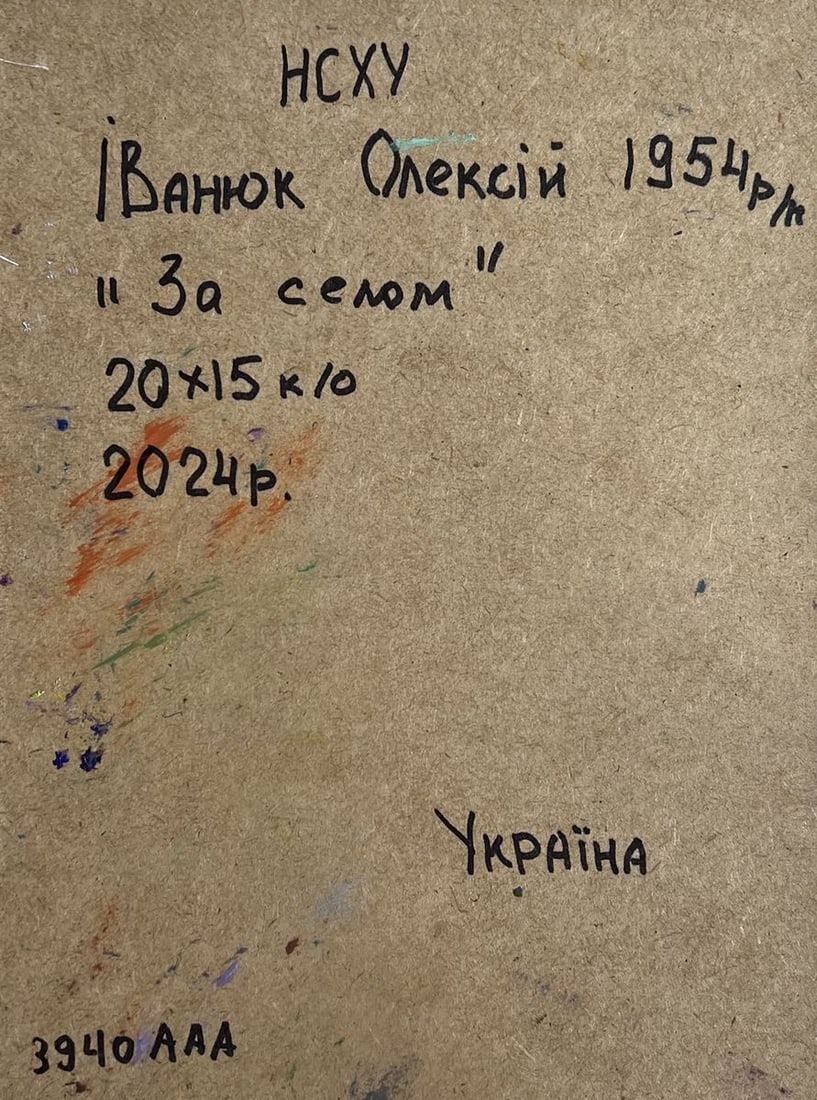 НСХУ
Іванюк Олексій 1954р/н
"За селом"
20х15 к/о
2024р.
Україна
3940 ААА